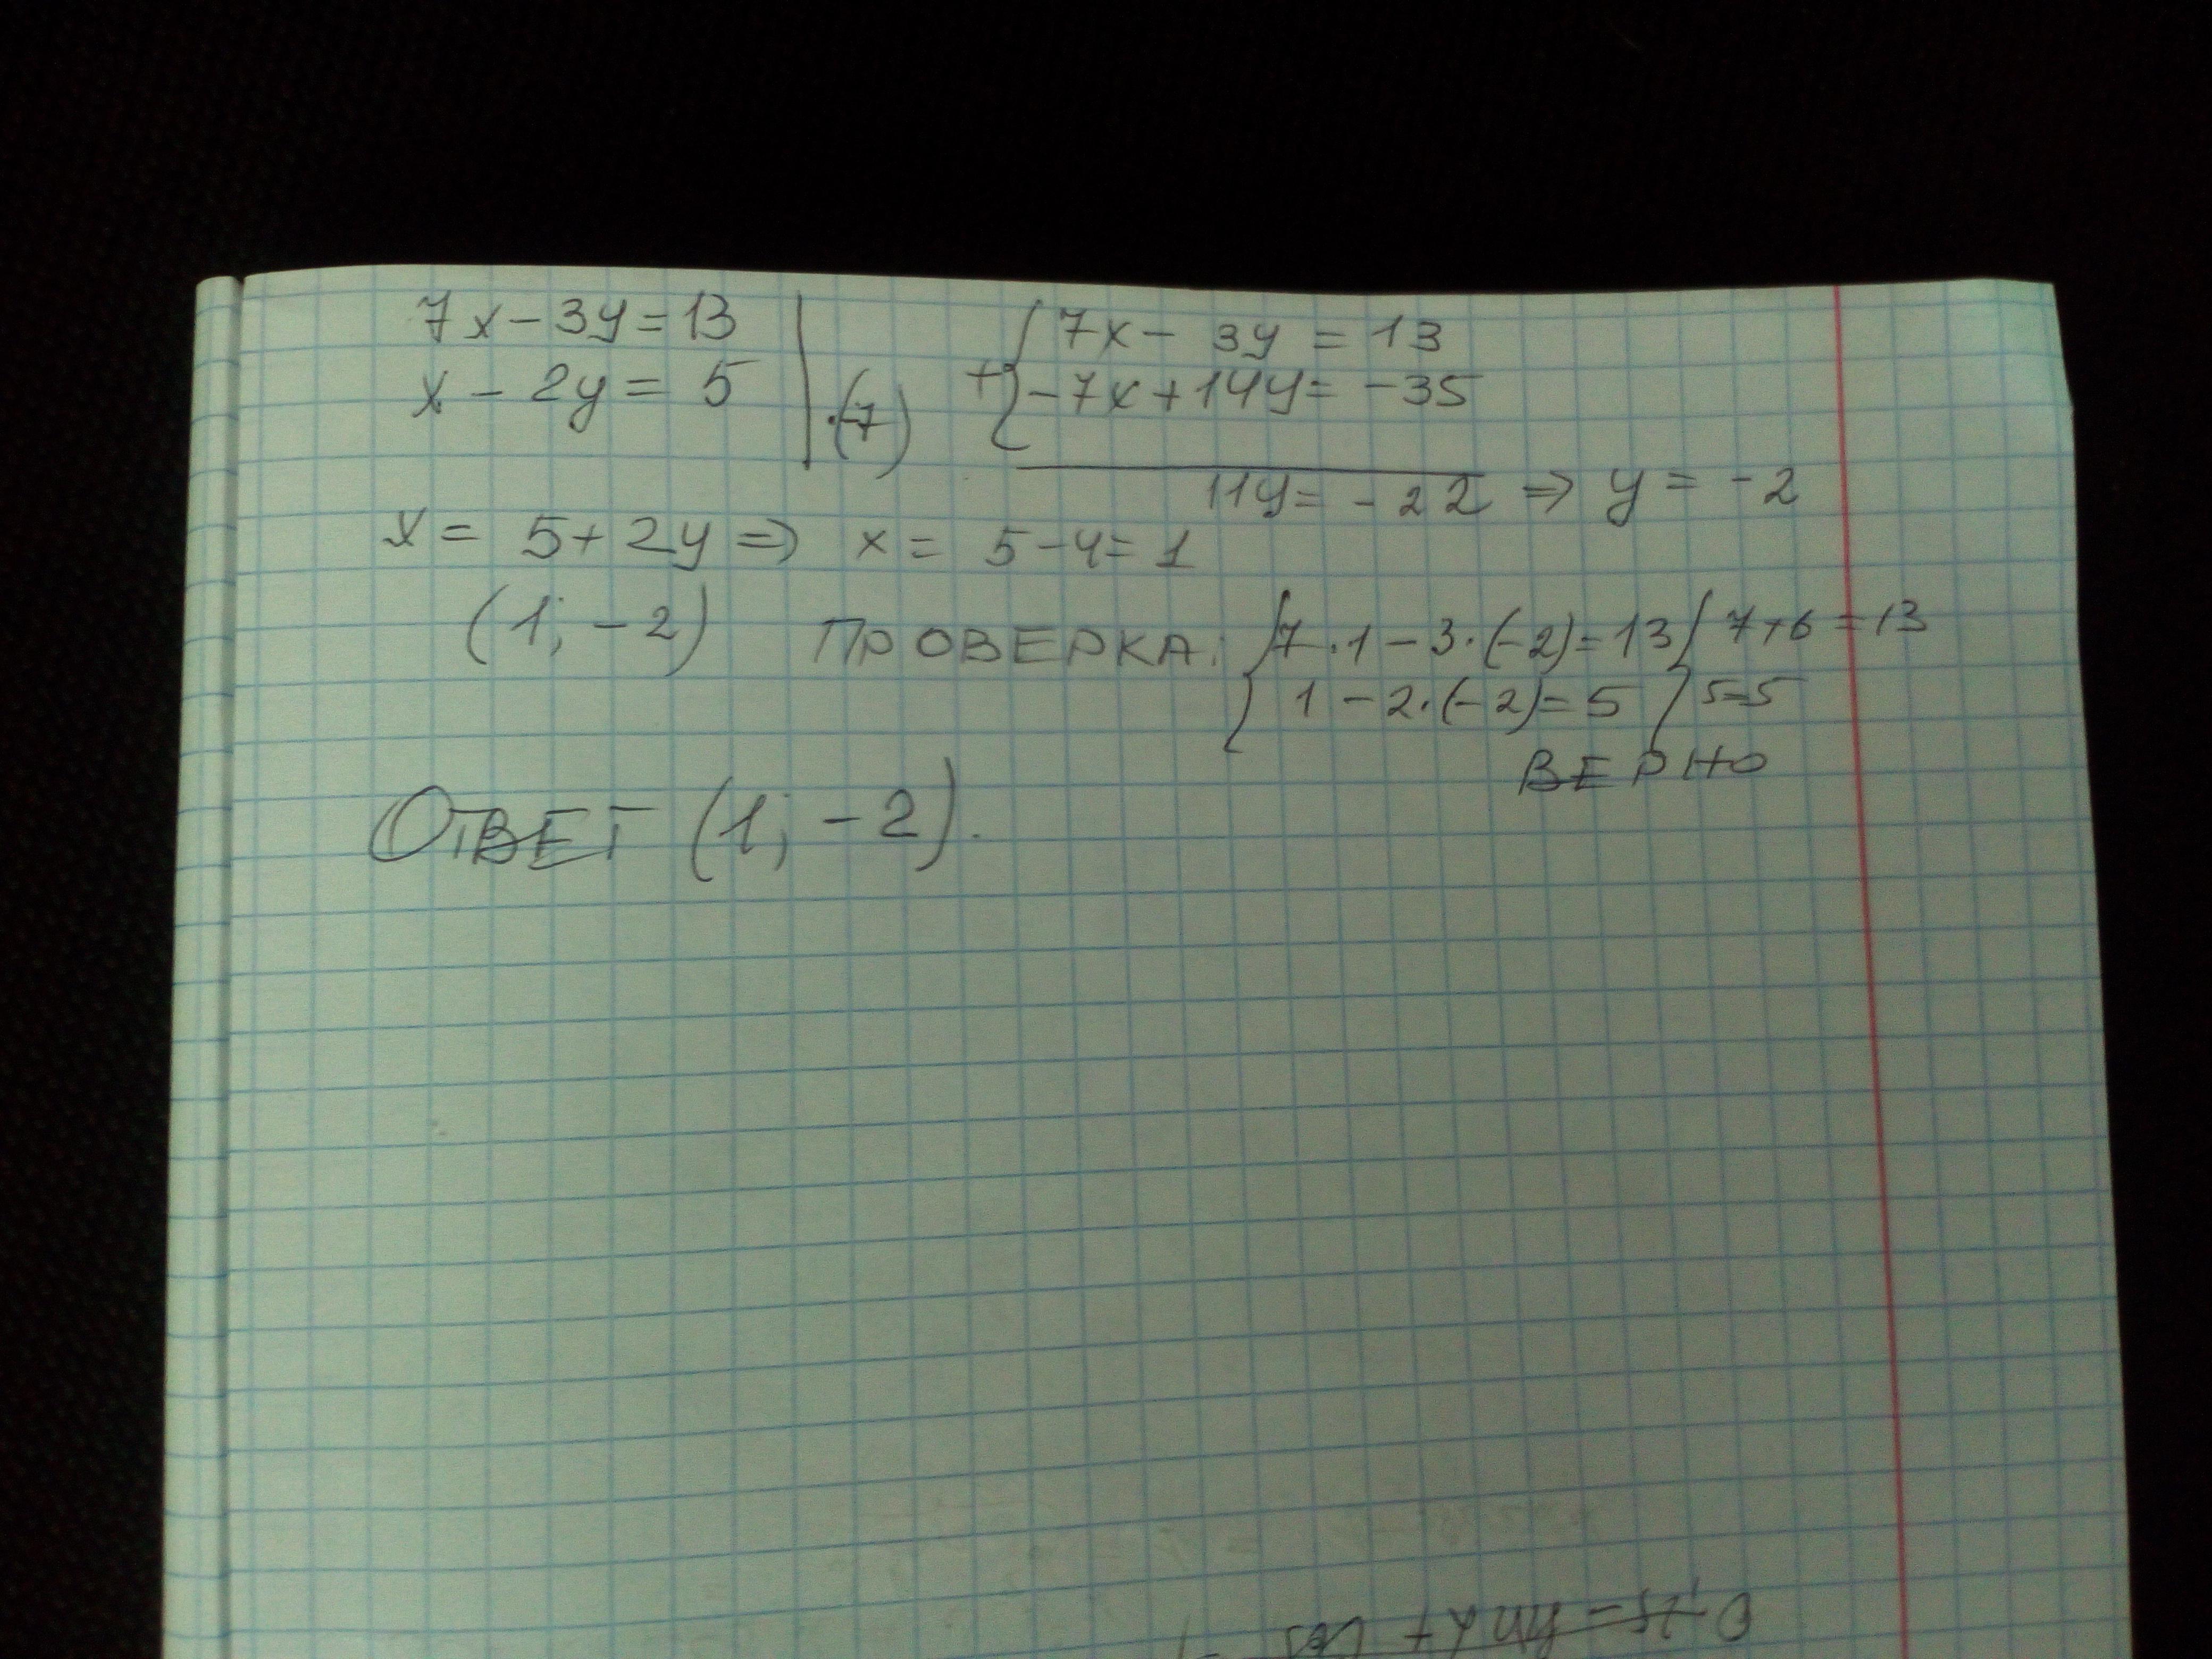 7x - 3y = 13
x - 2y = 5 | ·(-7)
+ { 7x - 3y = 13
-7x + 14y = -35
11y = -22 ⇒ y = -2
x = 5 + 2y ⇒ x = 5 - 4 = 1
(1; -2) ПРОВЕРКА: { 7·1 - 3·(-2) = 13 { 7 + 6 = 13
1 - 2·(-2) = 5 5 = 5
ВЕРНО
ОТВЕТ (1; -2).